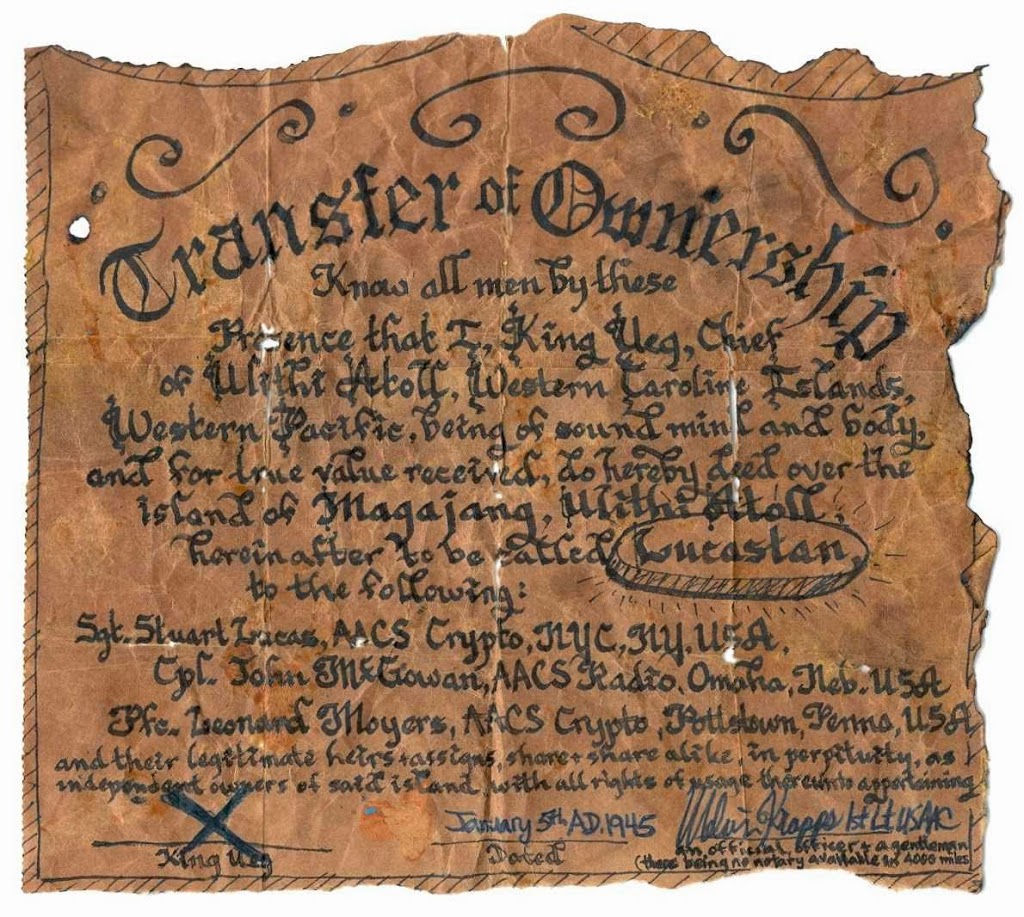 Transfer of Ownership
Know all men by these
Presence that I, King Ueg, Chief
of Ulithi Atoll, Western Caroline Islands,
Western Pacific, being of sound mind and body,
and for true value received, do hereby deed over the
island of Magajang, Ulithi Atoll,
hereinafter to be called Lucastan
to the following:
Sgt. Stuart Lucas, AACS Crypto, NYC, NY, USA.
Cpl. John McGowan, AACS Radio, Omaha, Neb. USA
Pfc. Leonard Moyers, AACS Crypto, Pottstown, Penna, USA
and their legitimate heirs + assigns, share + share alike in perptiuity, as
independent owners of said island, with all rights of usage thereunto appertaining
X
January 5th A.D. 1945
Krapps 1st Lt USAAC
King Ueg
Dated
an official officer + a gentleman
(there being no notary available in 4000 miles)